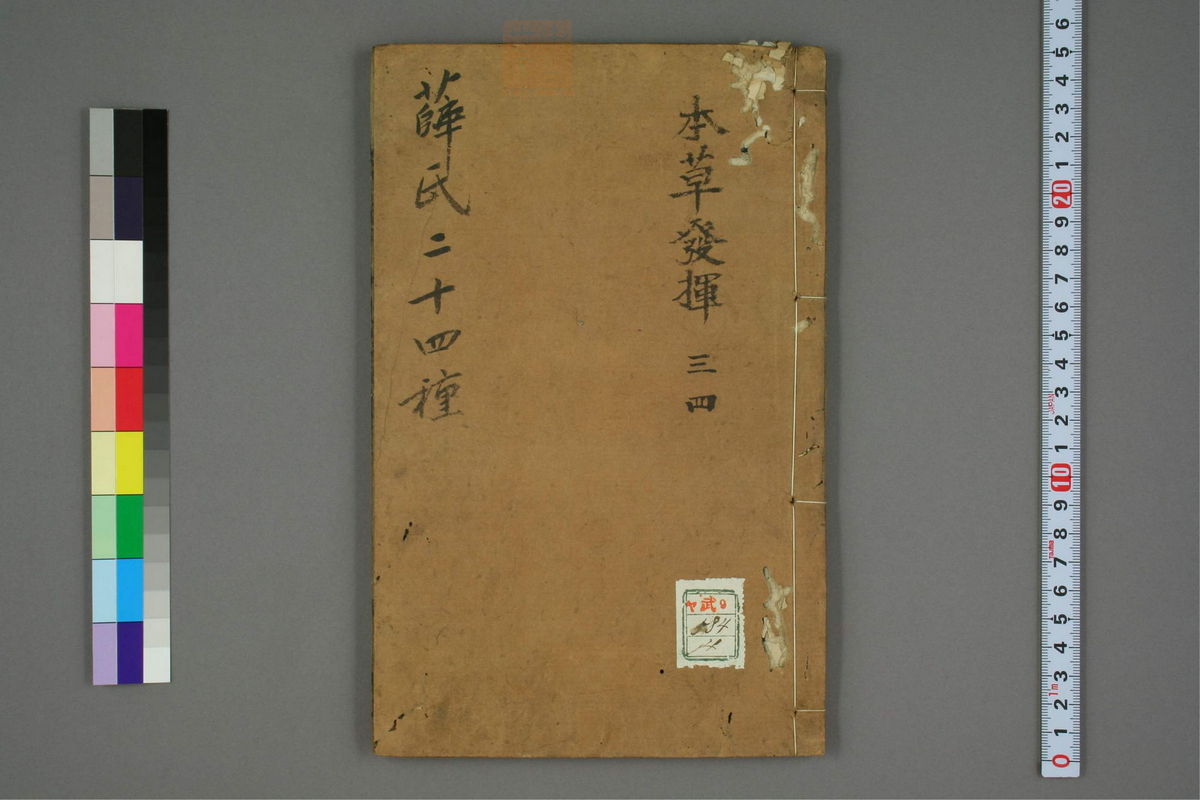 本草發揮 三四
薛氏二十四種
武
184
0 1 2 3 4 5 6 7 8 9 10 1 2 3 4 5 6 7 8 9 20 1 2 3 4 5 6
1m
JAPAN